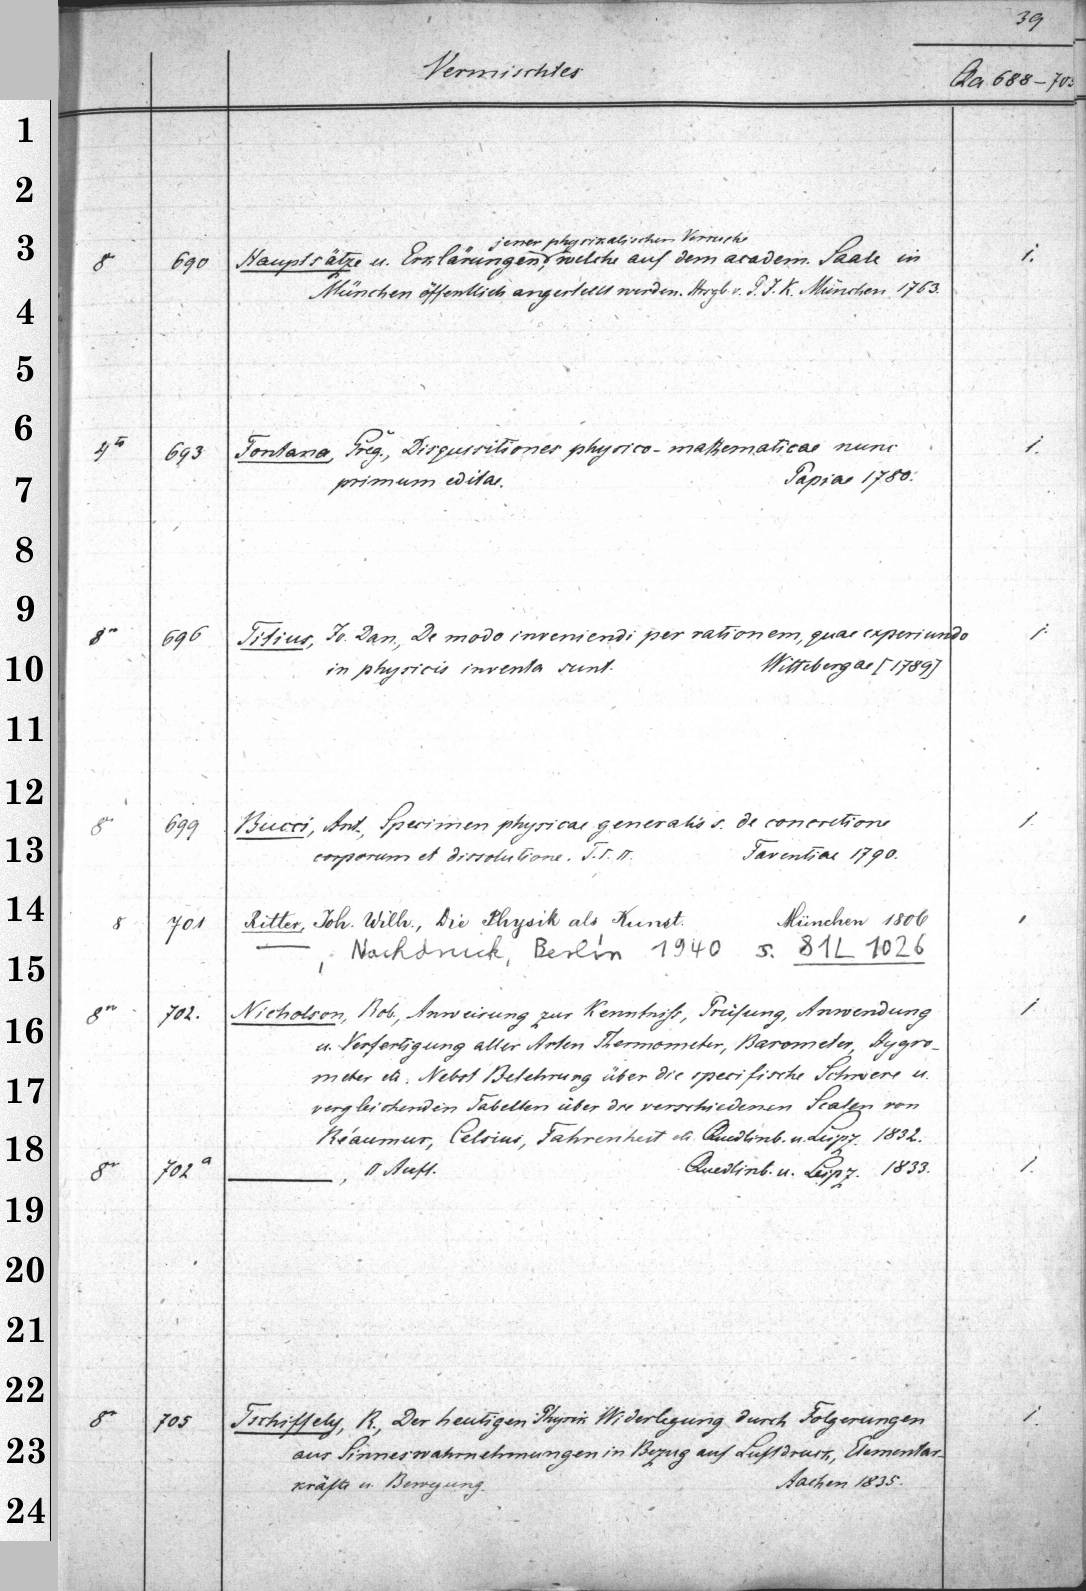 39
Vermischtes
Qa 688–703
1
2
3
jener physikalischen Versuche
8° 690 Hauptsätze u. Erklärungen, welche auf dem academ. Saale in 1.
München öffentlich angestellt werden. Hrsgb. v. P. J. K. München 1763.
4
5
6
4to 693 Fontana, Greg., Disquisitiones physico-mathematicae nunc 1.
primum editae. Papiae 1780.
7
8
9
8° 696 Titius, Jo. Dan., De modo inveniendi per rationem, quae experiundo 1.
in physicis inventa sunt. Wittebergae [1789]
10
11
12
8° 699 Bucci, Ant., Specimen physicae generalis s. de concretione 1.
corporum et dissolutione. T. I. II. Faventiae 1790.
13
14
8 701 Ritter, Joh. Wilh., Die Physik als Kunst. München 1806
——, Nachdruck, Berlin 1940 s. 81L 1026
15
8° 702. Nicholson, Rob., Anweisung zur Kenntniss, Prüfung, Anwendung 1
16
u. Verfertigung aller Arten Thermometer, Barometer, Hygro-
meter etc. Nebst Belehrung über die specifische Schwere u.
17
vergleichenden Tabellen über die verschiedenen Scalen von
Réaumur, Celsius, Fahrenheit etc. Quedlinb. u. Leipz. 1832.
18
8° 702a ——, II Aufl. Quedlinb. u. Leipz. 1833. 1.
19
20
21
22
8° 705 Tschiffely, R., Der heutigen Physik Widerlegung durch Folgerungen 1.
23
aus Sinneswahrnehmungen in Bezug auf Luftdruck, Elementar-
kräfte u. Bewegung. Aachen 1835.
24